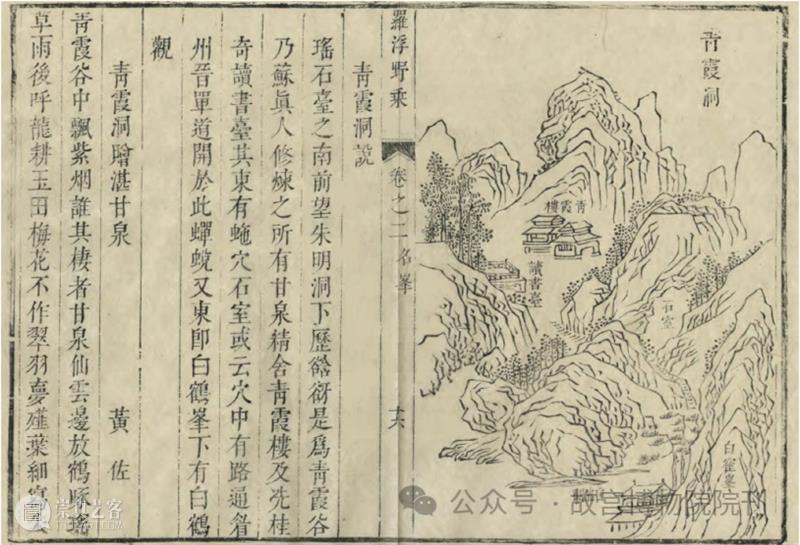 青霞洞
青霞樓
讀書臺
石室
白鶴峯
羅浮野乘
卷之二
名峯
十六
青霞洞說
瑤石臺之南前望朱明洞下歷谽谺是爲青霞谷
乃蘇眞人修煉之所有甘泉精舍青霞樓及冼桂
奇讀書臺其東有蛇穴石室或云穴中有路通
州晉單道開於此蟬蛻又東卽白鶴峯下有白鶴
觀
青霞洞贈湛甘泉 黃佐
青霞谷中飄紫烟誰其棲者甘泉仙雲邊放鶴啄瑤
草雨後呼龍耕玉田梅花不作翠羽夢 葉細
公众号·故宫博物院院刊
崇真艺客